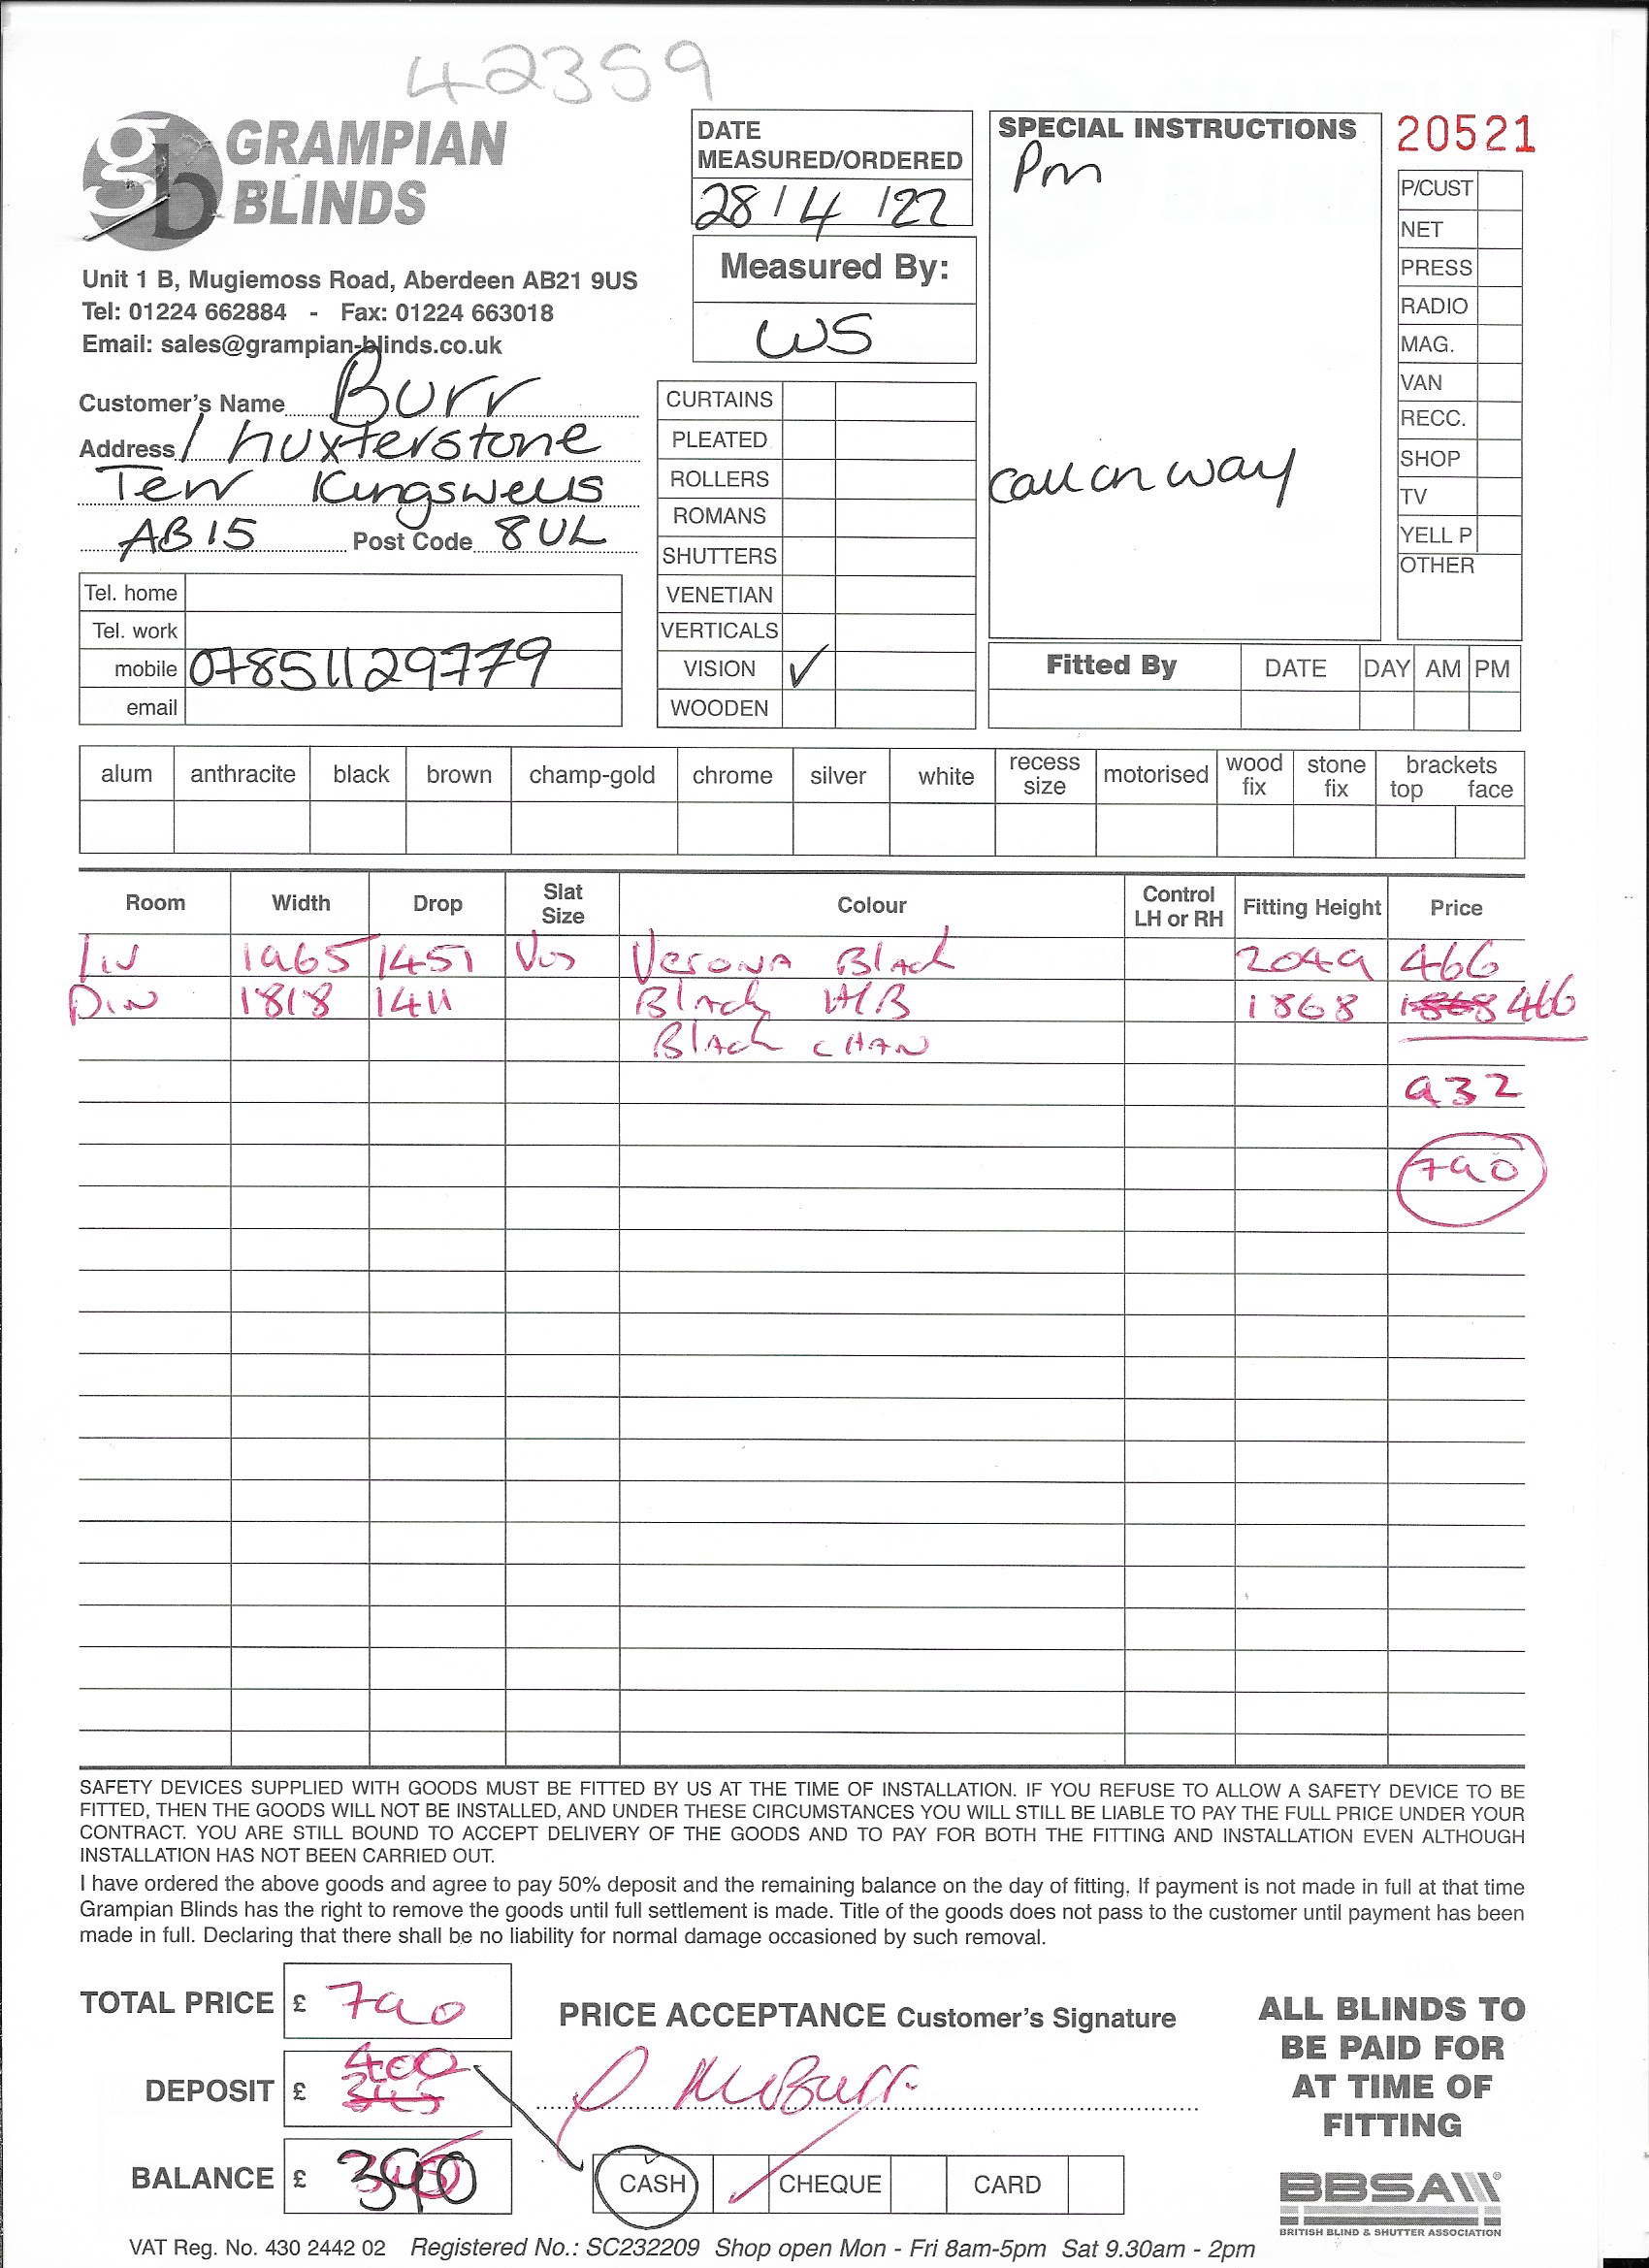 42359
GRAMPIAN
BLINDS
Unit 1 B, Mugiemoss Road, Aberdeen AB21 9US
Tel: 01224 662884 - Fax: 01224 663018
Email: sales@grampian-blinds.co.uk
Customer's Name Burr
Address 1 huxterstone
Terr Kingswells
AB15 Post Code 8UL
Tel. home
Tel. work
mobile 07851129779
email
DATE
MEASURED/ORDERED
28/4/22
Measured By:
WS
CURTAINS
PLEATED
ROLLERS
ROMANS
SHUTTERS
VENETIAN
VERTICALS
VISION ✓
WOODEN
SPECIAL INSTRUCTIONS
Pm
Call on way
20521
P/CUST
NET
PRESS
RADIO
MAG.
VAN
RECC.
SHOP
TV
YELL P
OTHER
Fitted By DATE DAY AM PM
alum anthracite black brown champ-gold chrome silver white recess size motorised wood fix stone fix brackets top face
Room Width Drop Slat Size Colour Control LH or RH Fitting Height Price
Liv 1965 1451 Vis Verona Black 2049 466
Din 1818 1411 Black 1868 466
Black CHAN
932
790
SAFETY DEVICES SUPPLIED WITH GOODS MUST BE FITTED BY US AT THE TIME OF INSTALLATION. IF YOU REFUSE TO ALLOW A SAFETY DEVICE TO BE
FITTED, THEN THE GOODS WILL NOT BE INSTALLED, AND UNDER THESE CIRCUMSTANCES YOU WILL STILL BE LIABLE TO PAY THE FULL PRICE UNDER YOUR
CONTRACT. YOU ARE STILL BOUND TO ACCEPT DELIVERY OF THE GOODS AND TO PAY FOR BOTH THE FITTING AND INSTALLATION EVEN ALTHOUGH
INSTALLATION HAS NOT BEEN CARRIED OUT.
I have ordered the above goods and agree to pay 50% deposit and the remaining balance on the day of fitting. If payment is not made in full at that time
Grampian Blinds has the right to remove the goods until full settlement is made. Title of the goods does not pass to the customer until payment has been
made in full. Declaring that there shall be no liability for normal damage occasioned by such removal.
TOTAL PRICE £ 790
DEPOSIT £ 400
BALANCE £ 390
PRICE ACCEPTANCE Customer's Signature
CASH ✓ CHEQUE CARD
ALL BLINDS TO
BE PAID FOR
AT TIME OF
FITTING
BBSA
BRITISH BLIND & SHUTTER ASSOCIATION
VAT Reg. No. 430 2442 02 Registered No.: SC232209 Shop open Mon - Fri 8am-5pm Sat 9.30am - 2pm